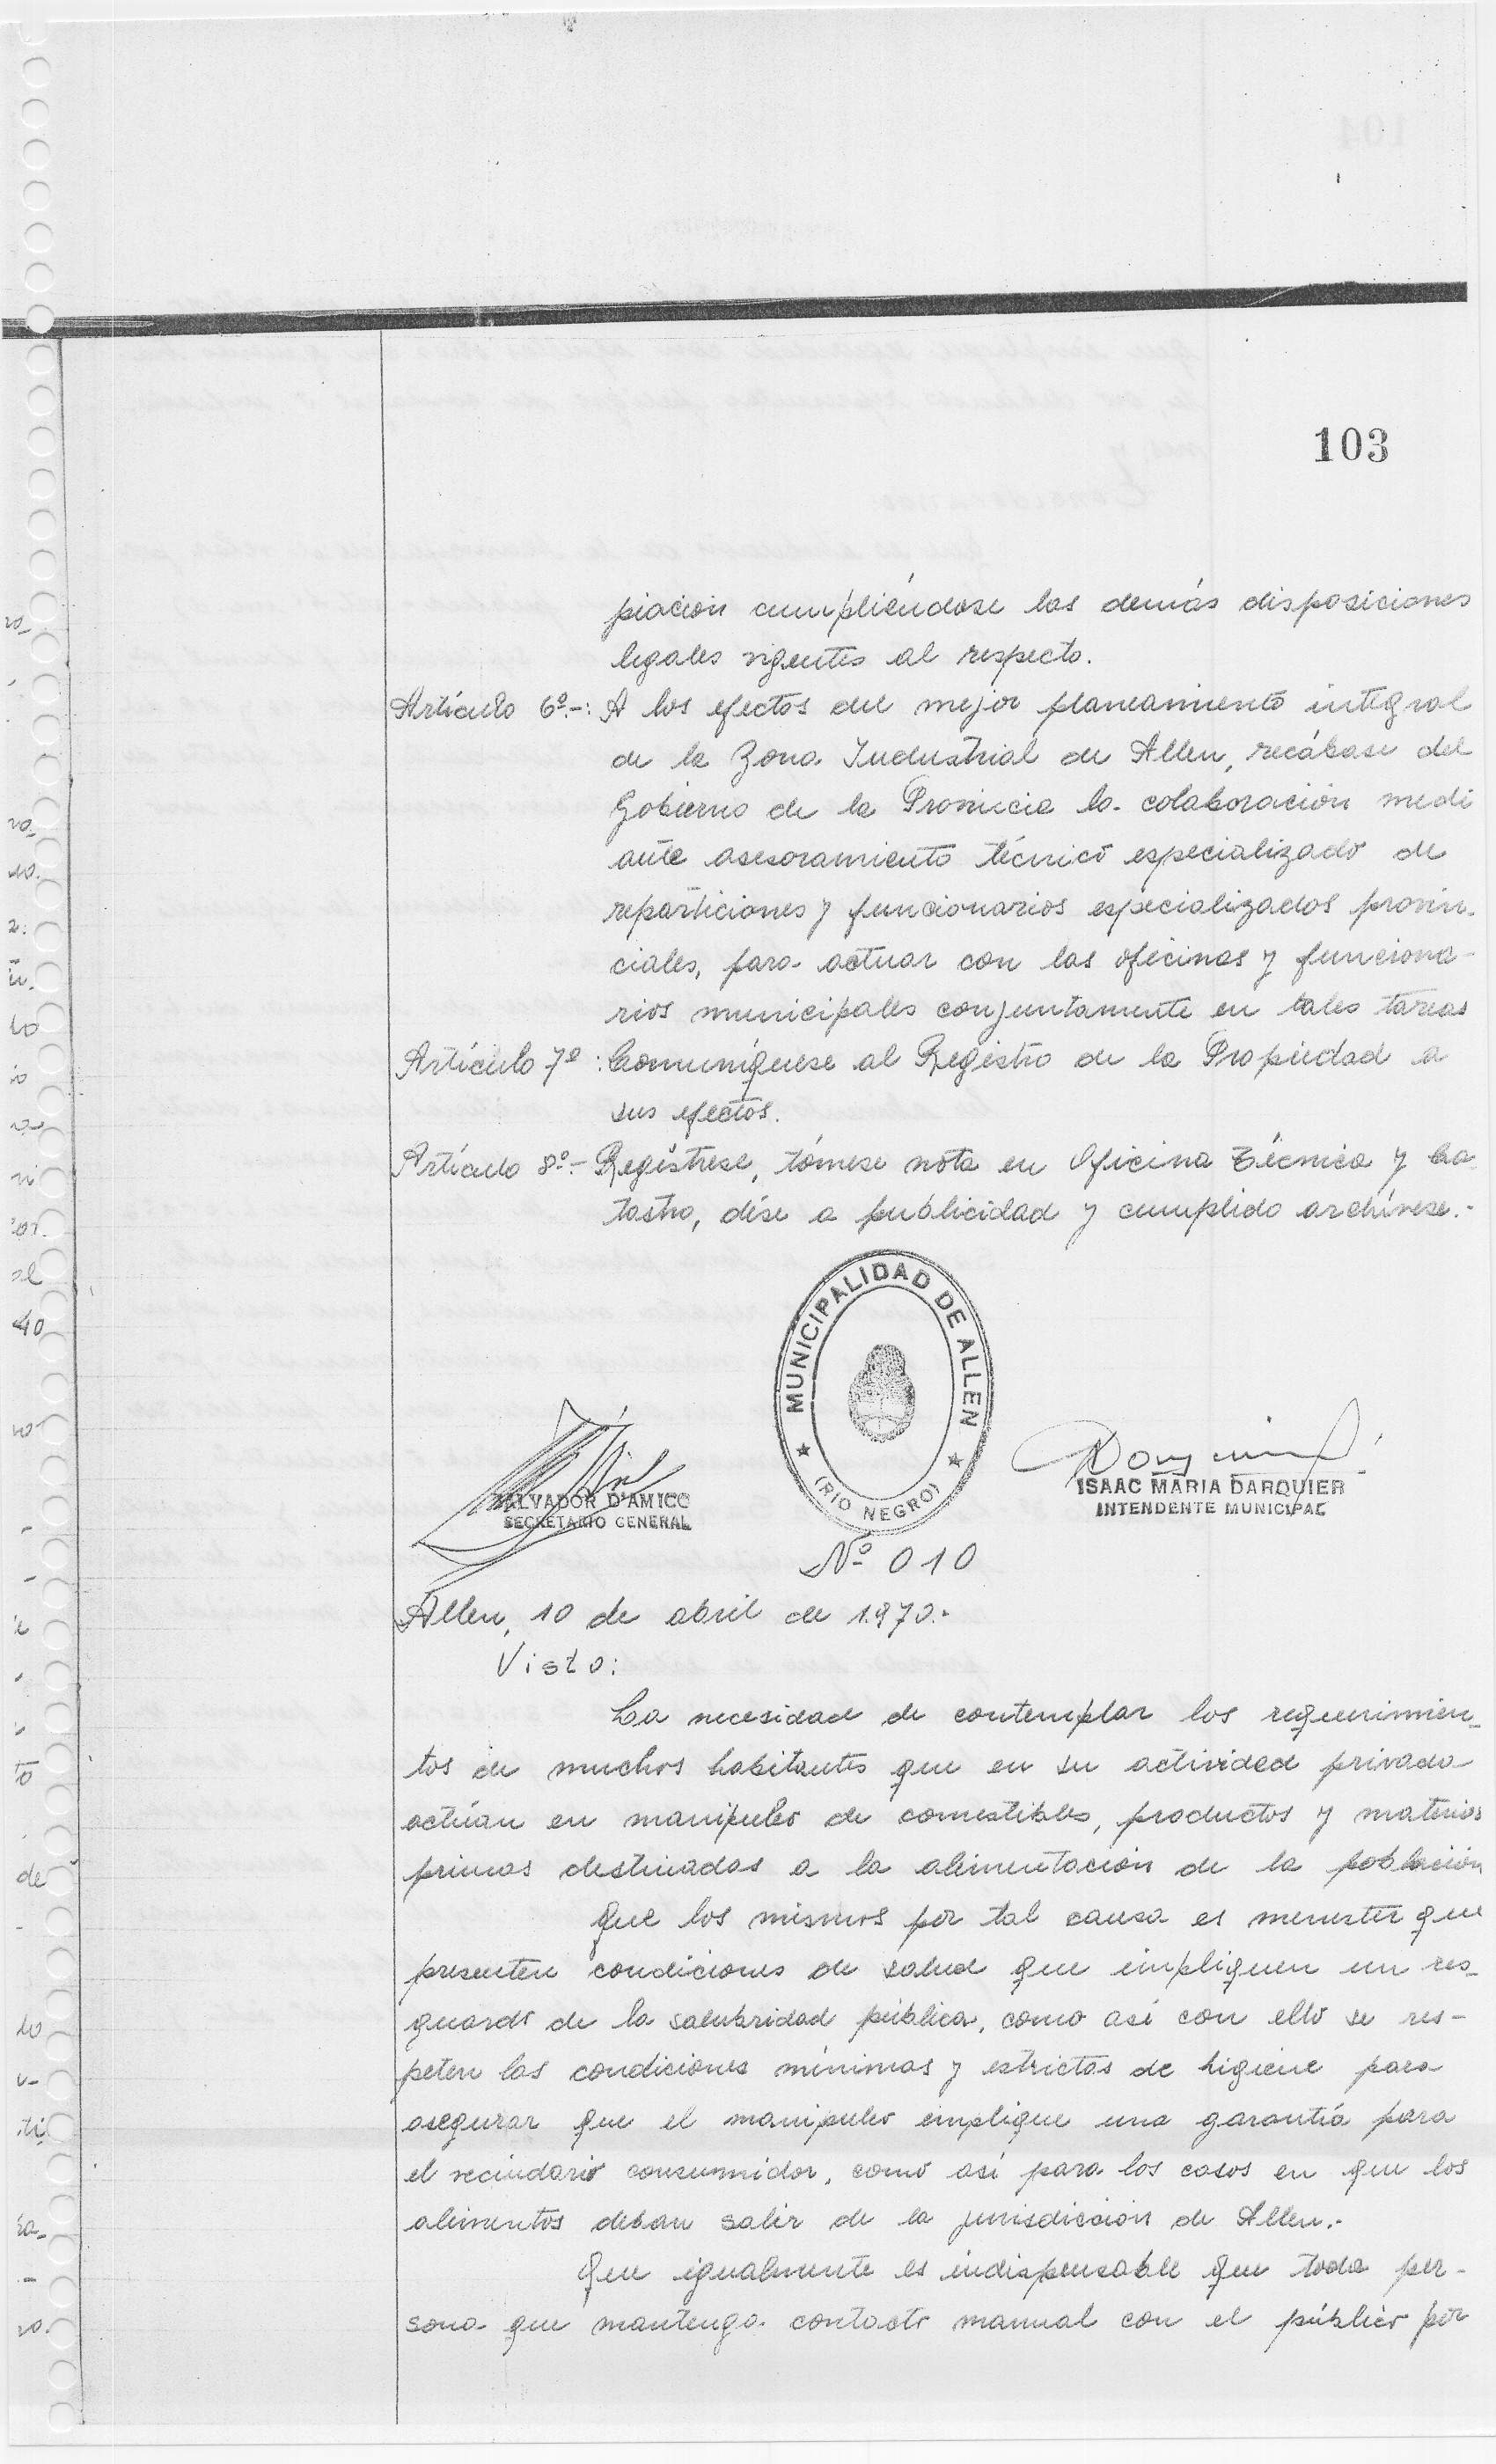 103
piación cumpliéndose las demás disposiciones
legales vigentes al respecto.
Artículo 6º.-: A los efectos del mejor planeamiento integral
de la Zona Industrial de Allen, recábase del
Gobierno de la Provincia la colaboración medi
ante asesoramiento técnico especializado de
reparticiones y funcionarios especializados provin-
ciales, para actuar con las oficinas y funciona-
rios municipales conjuntamente en tales tareas
Artículo 7º: Comuníquese al Registro de la Propiedad a
sus efectos.
Artículo 8º.- Regístrese, tómese nota en Oficina Técnica y Ca
tastro, dése a publicidad y cumplido archívese.-
MUNICIPALIDAD DE ALLEN
(RIO NEGRO)
SALVADOR D'AMICO
SECRETARIO GENERAL
ISAAC MARIA DARQUIER
INTENDENTE MUNICIPAL
Nº 010
Allen, 10 de abril de 1.970.-
Visto:
La necesidad de contemplar los requerimien-
tos de muchos habitantes que en su actividad privada
actúan en manipuleo de comestibles, productos y materias
primas destinadas a la alimentación de la población
que los mismos por tal causa es menester que
presenten condiciones de salud que impliquen un res-
guardo de la salubridad pública, como así con ello se res-
peten las condiciones mínimas y estrictas de higiene para
asegurar que el manipuleo implique una garantía para
el vecindario consumidor, como así para los casos en que los
alimentos deban salir de la jurisdicción de Allen.-
Que igualmente es indispensable que toda per-
sona que mantenga contacto manual con el público por